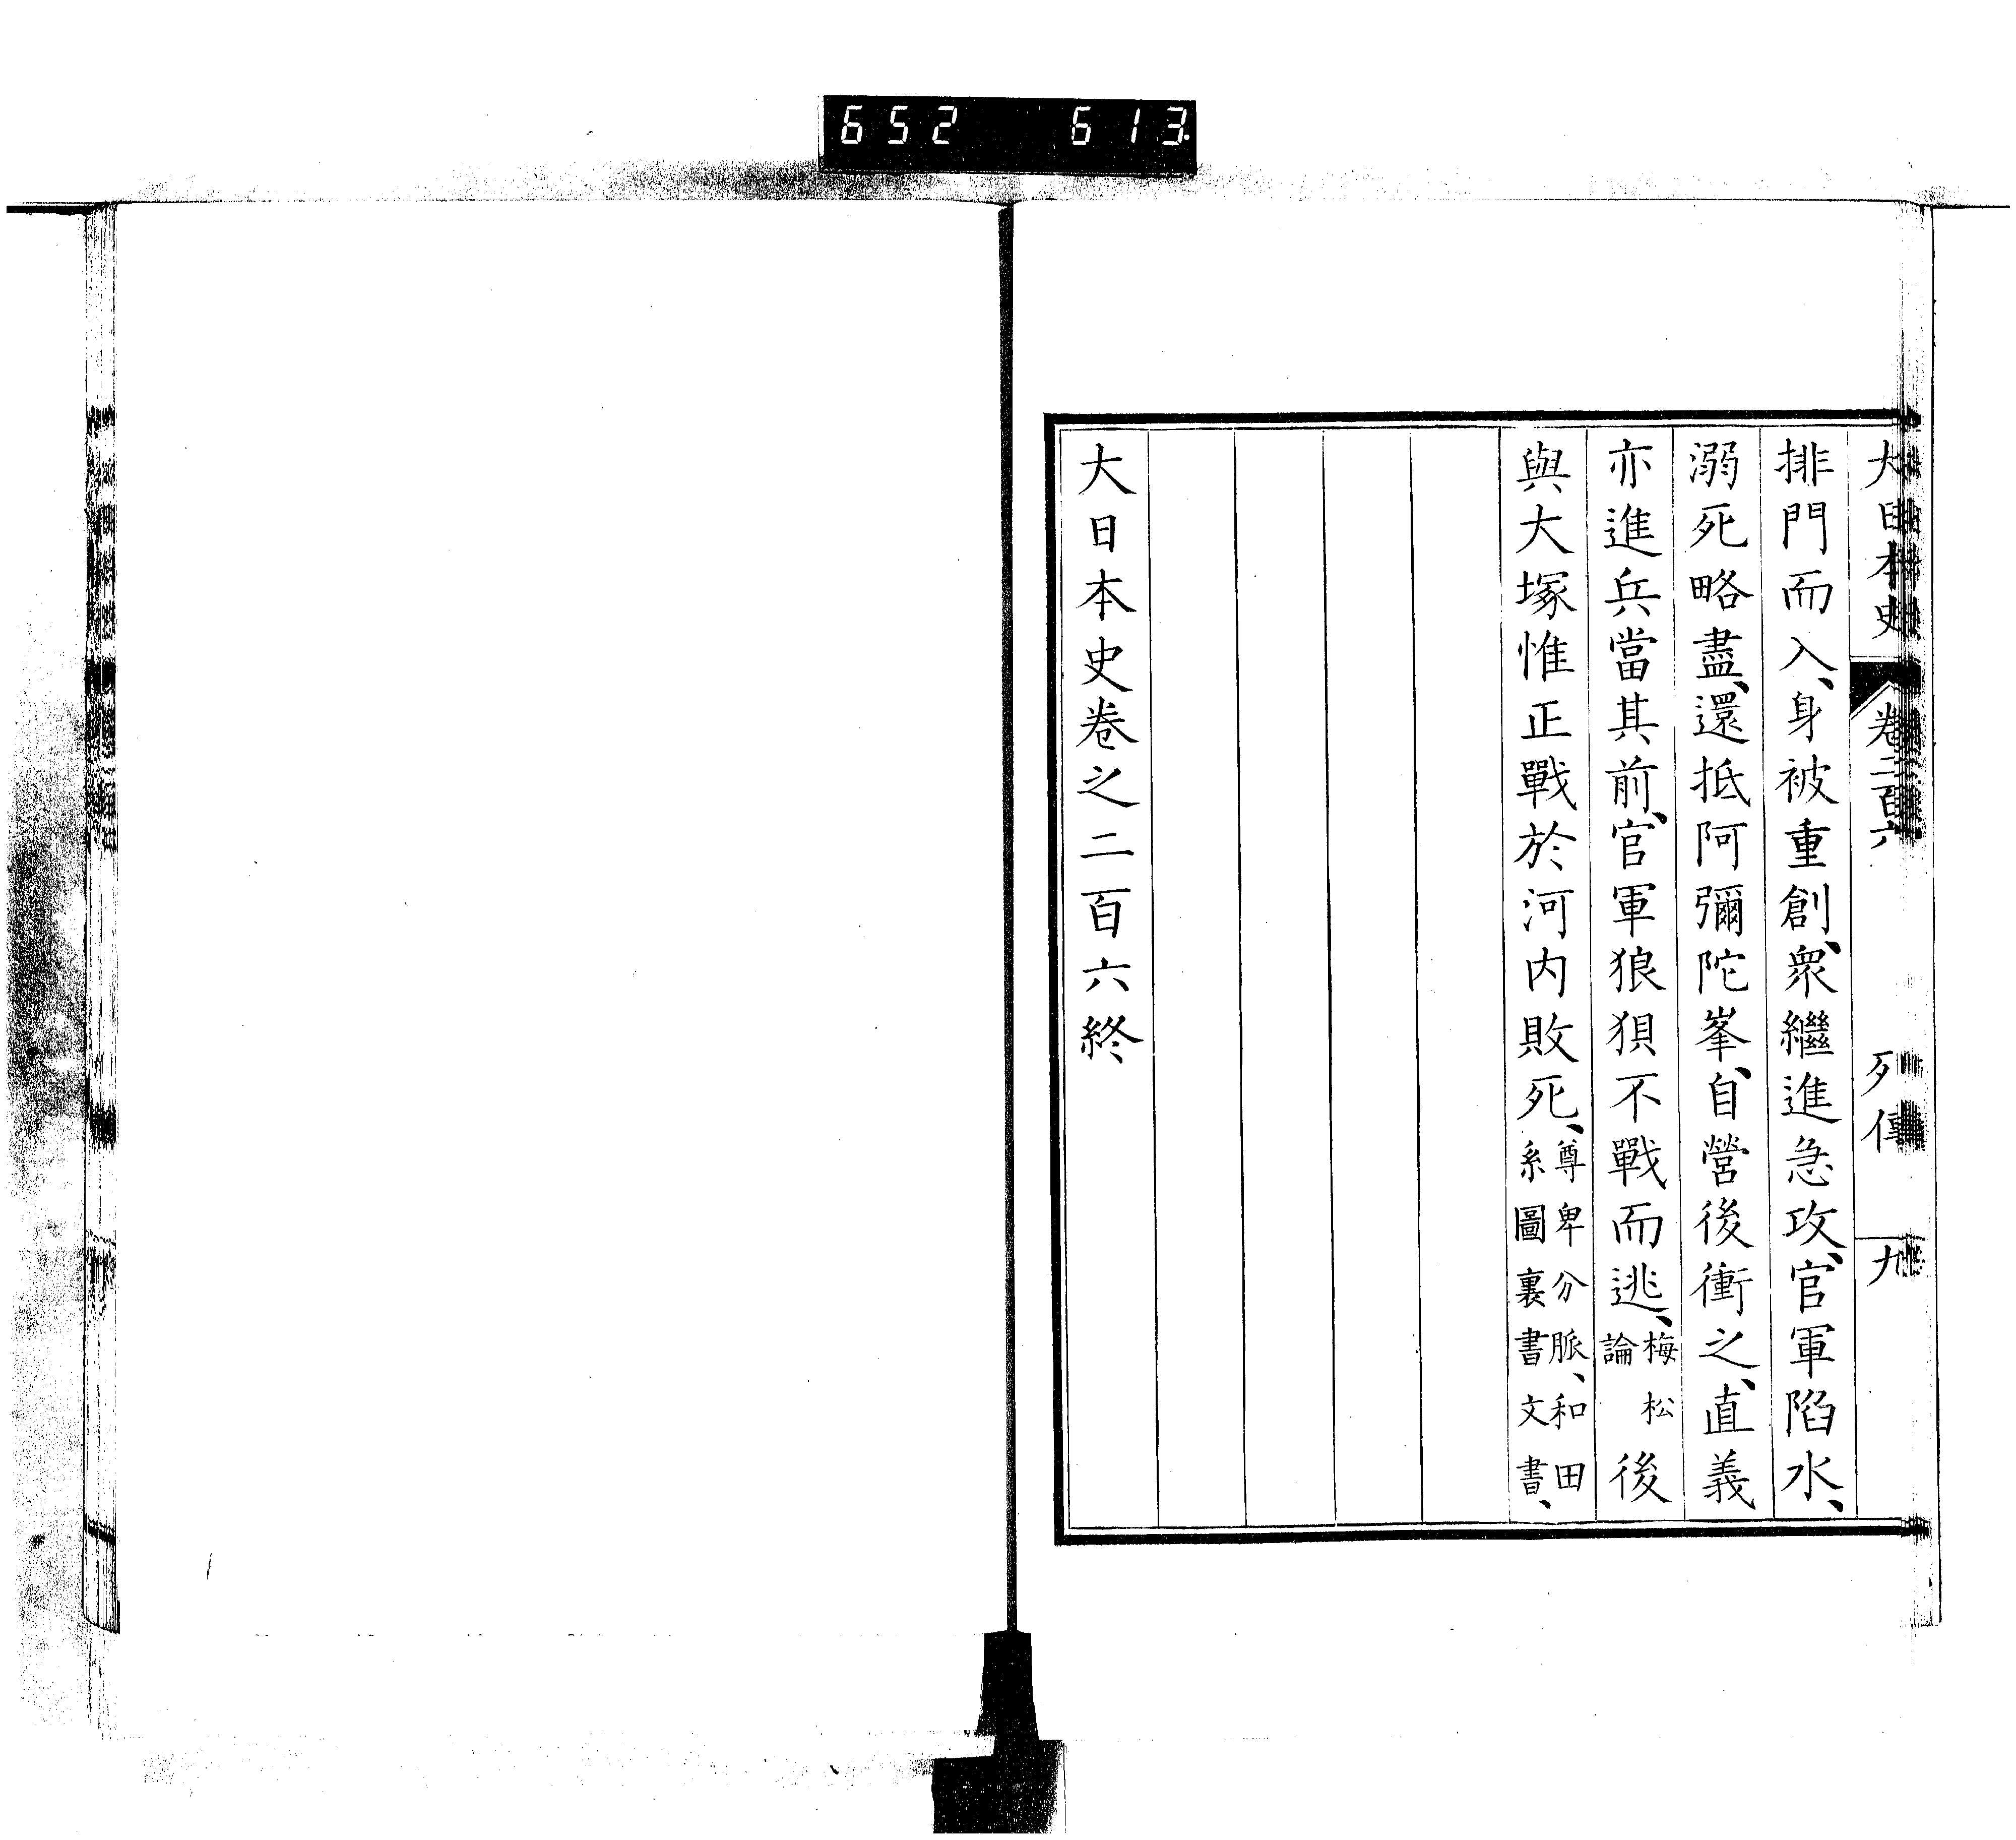 652 613
大日本史 卷二百六 列傳 九
排門而入、身被重創、衆繼進急攻、官軍陷水、
溺死略盡、還抵阿彌陀峯、自營後衝之、直義
亦進兵當其前、官軍狼狽不戰而逃、梅松論後
與大塚惟正戰於河内敗死、尊卑分脈、和田系圖裏書文書、
大日本史卷之二百六終